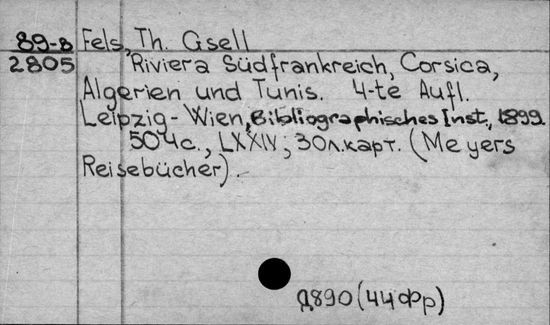 89-8 Fels, Th. Gsell
2805 Riviera Südfrankreich, Corsica,
Algerien und Tunis. 4-te Aufl.
Leipzig-Wien, Bibliographisches Inst., 1899.
504с., LXXIV; 30л.карт. (Meyers
Reisebücher).
Д890 (44Фр)